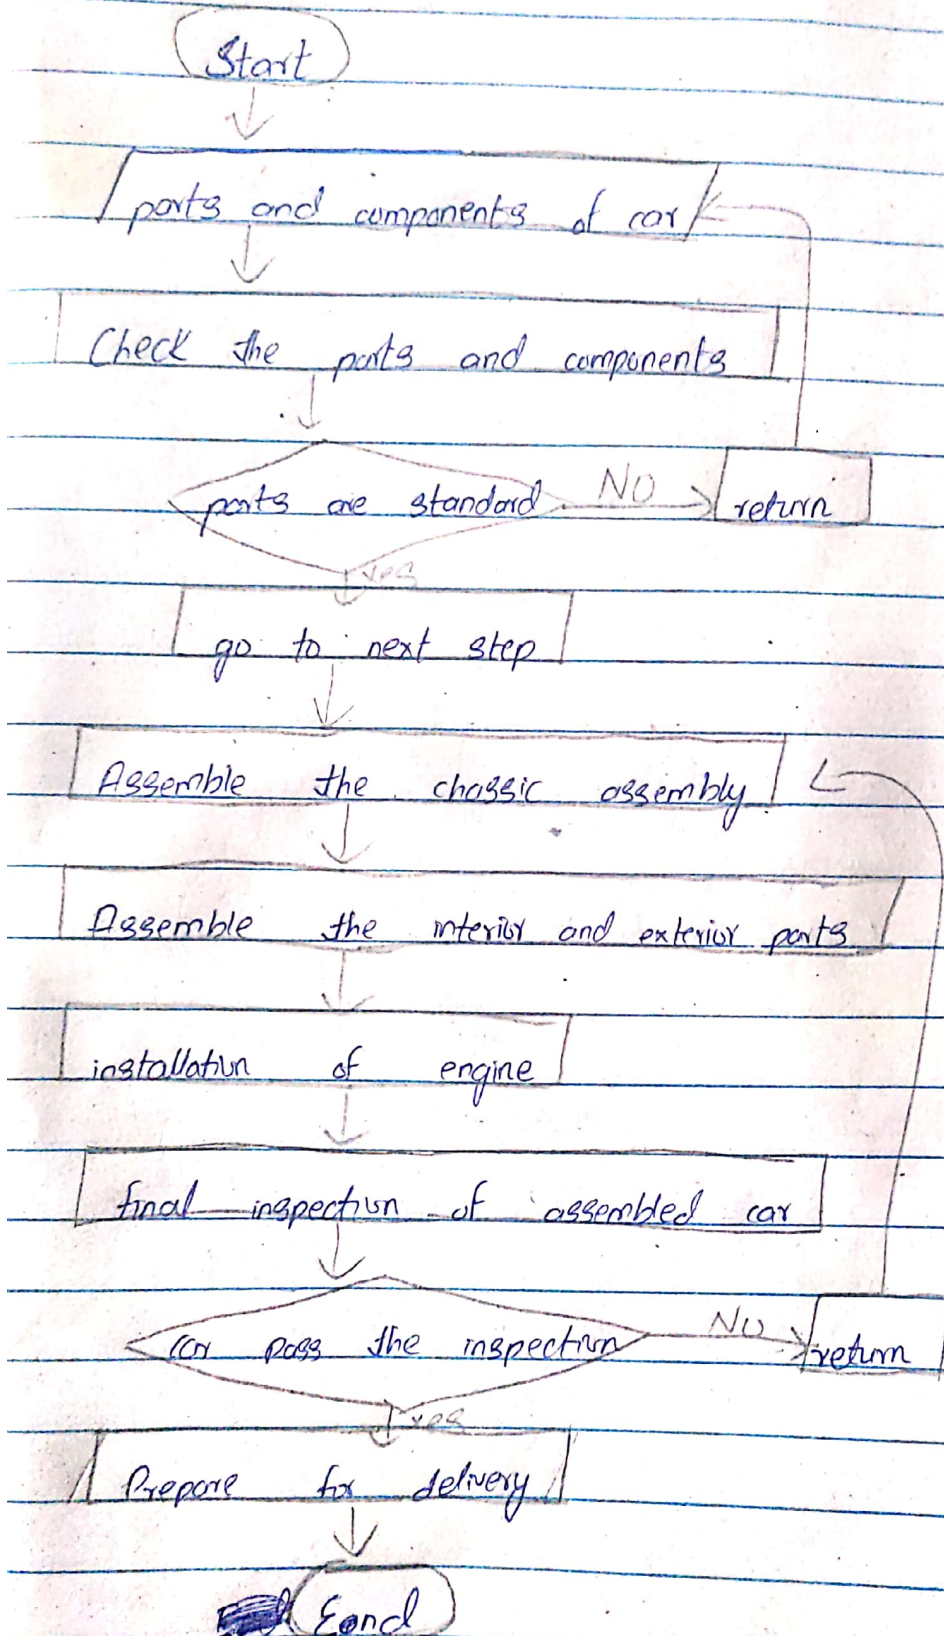 Start
parts and components of car
Check the parts and components
parts are standard NO return
yes
go to next step
Assemble the chassic assembly
Assemble the interior and exterior parts
installation of engine
final inspection of assembled car
car pass the inspection NO return
yes
Prepare for delivery
Eond